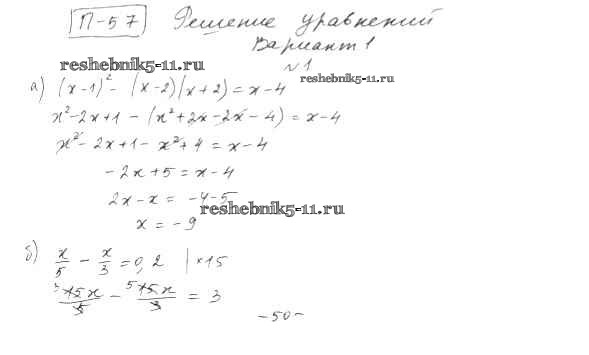 П-57 Решение уравнений
Вариант 1
reshebnik5-11.ru
№1
reshebnik5-11.ru
а) (x-1)² - (x-2)(x+2) = x-4
x²-2x+1 - (x²+2x-2x-4) = x-4
x²-2x+1-x²+4 = x-4
-2x+5 = x-4
2x-x = -4-5
reshebnik5-11.ru
x = -9
б) x/5 - x/3 = 0,2 | ×15
³15x/5 - ⁵15x/3 = 3
-50-